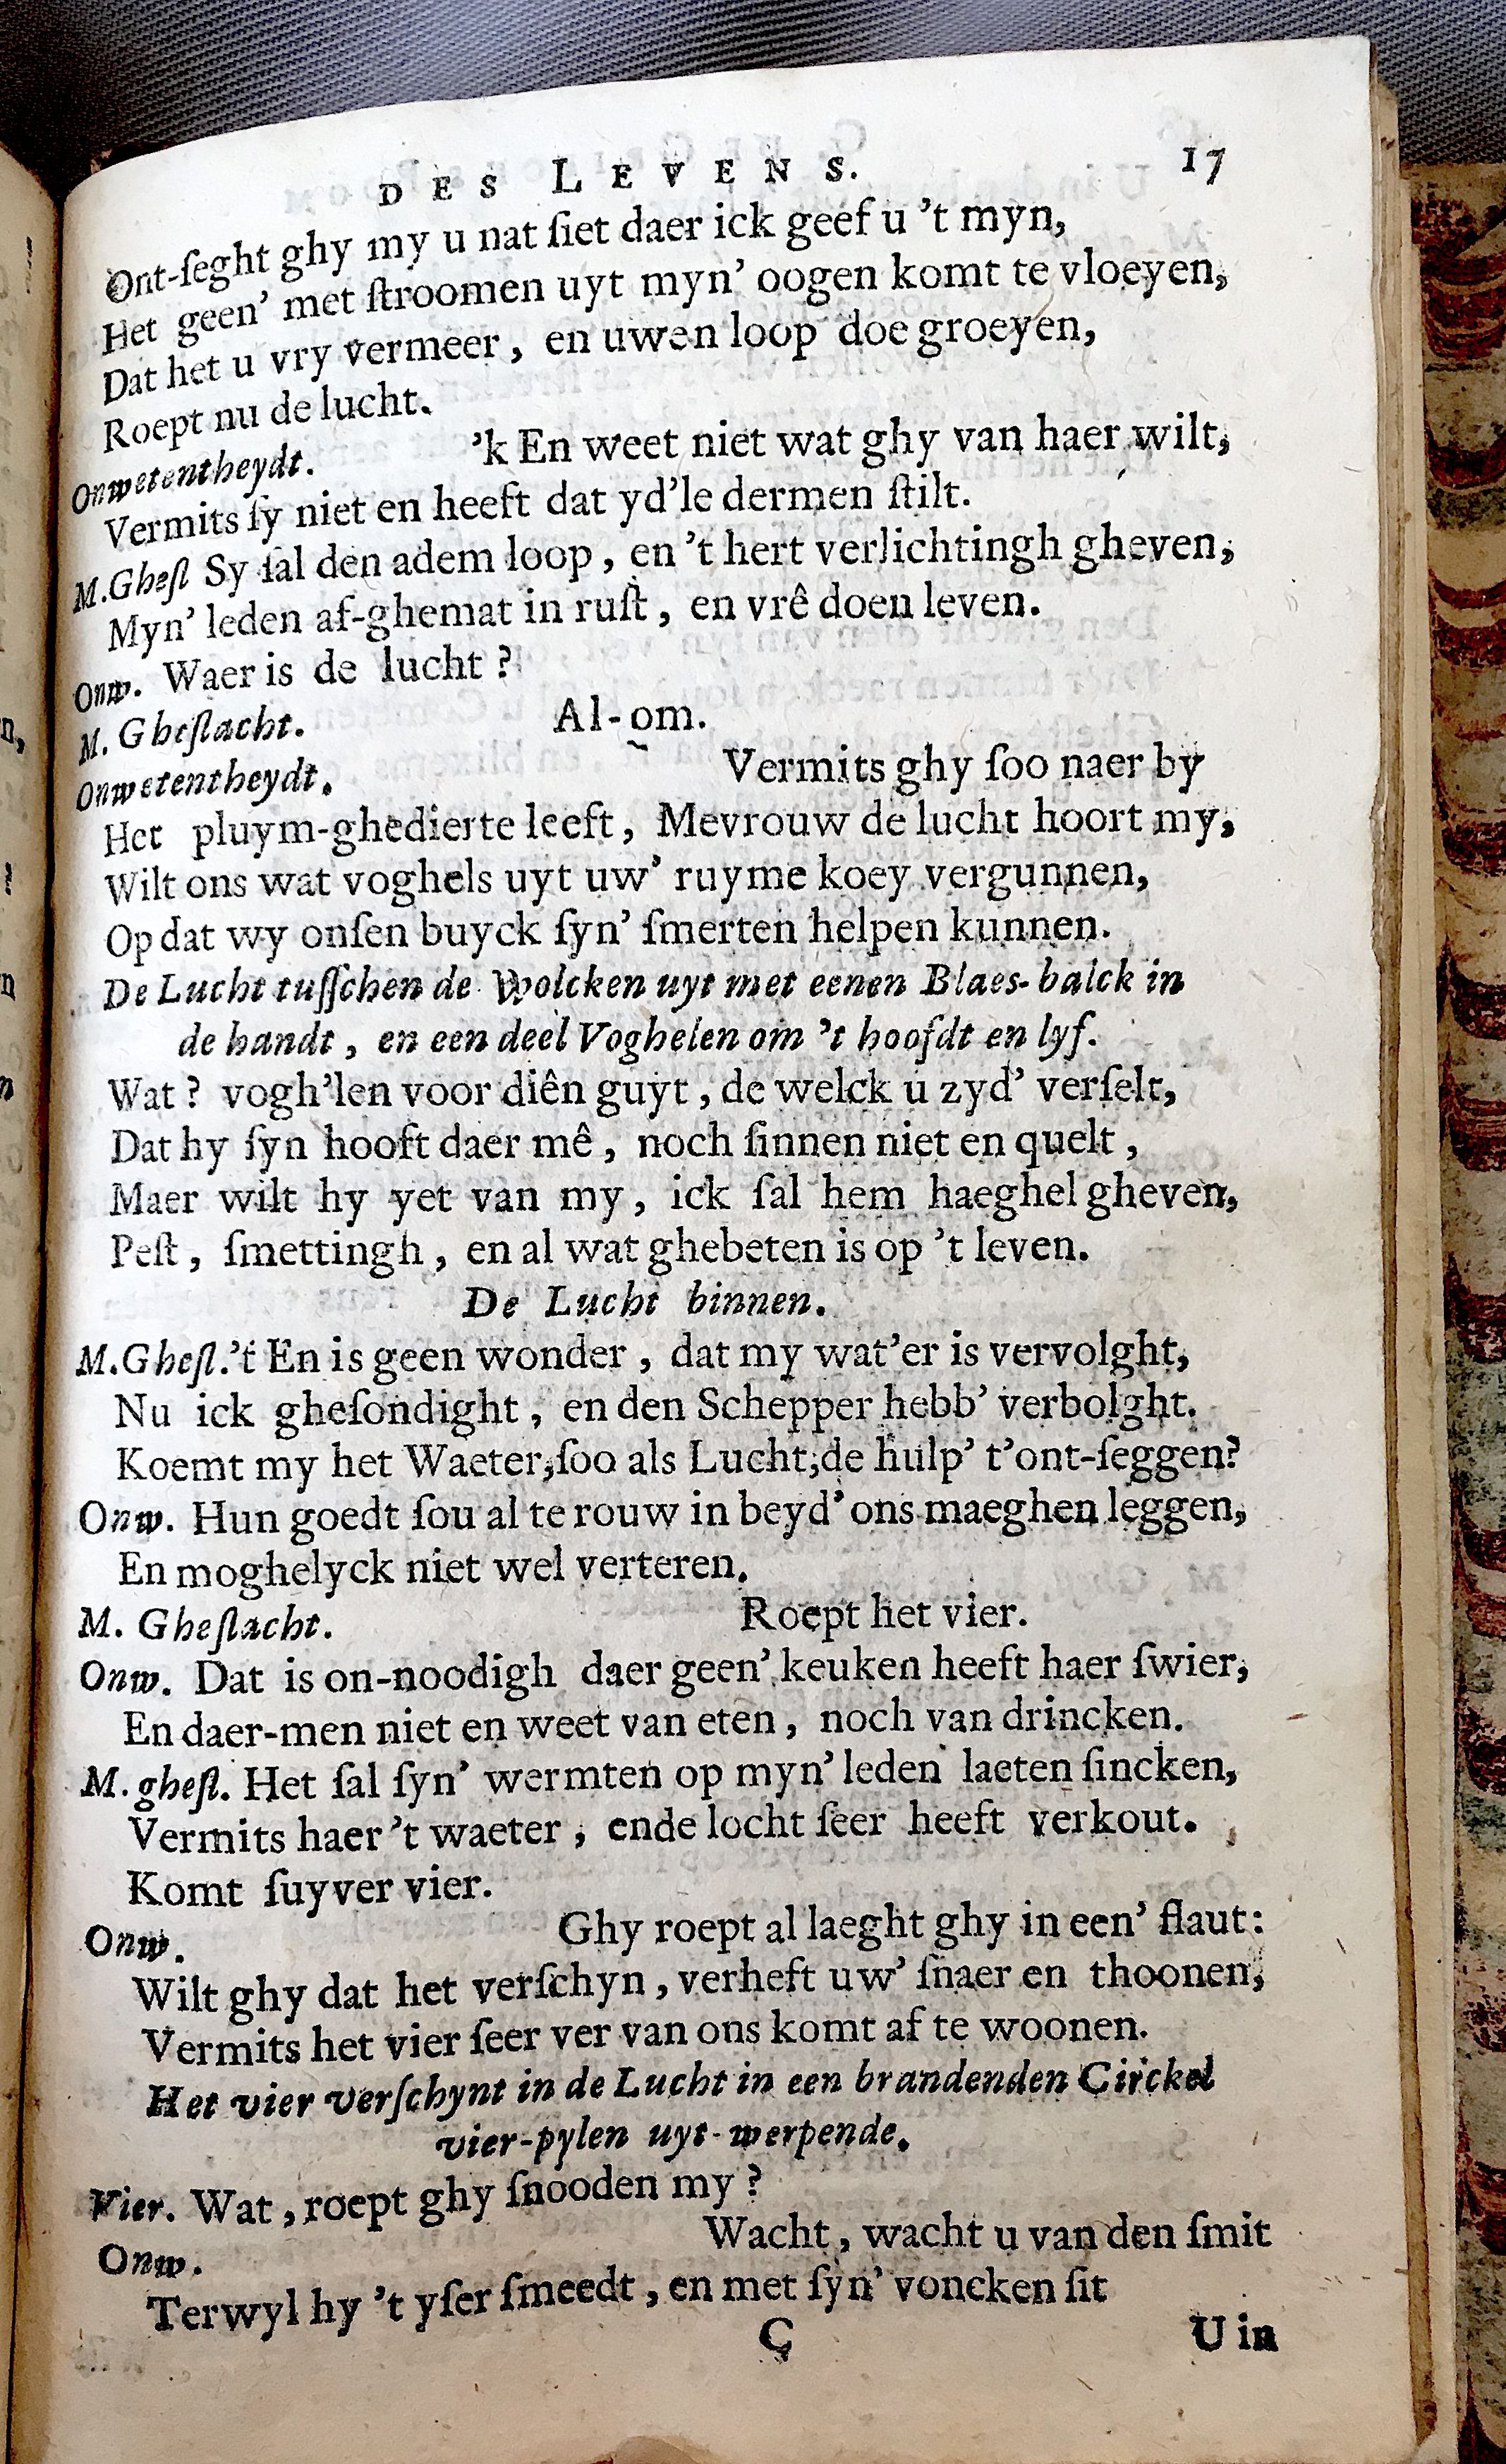 DES LEVENS. 17
Ont-ſeght ghy my u nat ſiet daer ick geef u 't myn,
Het geen' met ſtroomen uyt myn' oogen komt te vloeyen,
Dat het u vry vermeer, en uwen loop doe groeyen,
Roept nu de lucht.
Onwetentheydt. 'k En weet niet wat ghy van haer wilt,
Vermits ſy niet en heeft dat yd'le dermen ſtilt.
M.Gheſl Sy ſal den adem loop, en 't hert verlichtingh gheven,
Myn' leden af-ghemat in ruſt, en vrê doen leven.
Onw. Waer is de lucht?
M. Gheſlacht. Al-om.
Onwetentheydt. Vermits ghy ſoo naer by
Het pluym-ghedierte leeft, Mevrouw de lucht hoort my,
Wilt ons wat voghels uyt uw' ruyme koey vergunnen,
Op dat wy onſen buyck ſyn' ſmerten helpen kunnen.
De Lucht tuſſchen de Wolcken uyt met eenen Blaes-balck in
de handt, en een deel Voghelen om 't hoofdt en lyf.
Wat? vogh'len voor diên guyt, de welck u zyd' verſelt,
Dat hy ſyn hooft daer mê, noch ſinnen niet en quelt,
Maer wilt hy yet van my, ick ſal hem haeghel gheven,
Peſt, ſmettingh, en al wat ghebeten is op 't leven.
De Lucht binnen.
M.Gheſl.'t En is geen wonder, dat my wat'er is vervolght,
Nu ick gheſondight, en den Schepper hebb' verbolght.
Koemt my het Waeter,ſoo als Lucht;de hulp' t'ont-ſeggen?
Onw. Hun goedt ſou al te rouw in beyd' ons maeghen leggen,
En moghelyck niet wel verteren.
M. Gheſlacht. Roept het vier.
Onw. Dat is on-noodigh daer geen' keuken heeft haer ſwier,
En daer-men niet en weet van eten, noch van drincken.
M. gheſl. Het ſal ſyn' wermten op myn' leden laeten ſincken,
Vermits haer 't waeter, ende locht ſeer heeft verkout.
Komt ſuyver vier.
Onw. Ghy roept al laeght ghy in een' flaut:
Wilt ghy dat het verſchyn, verheft uw' ſnaer en thoonen,
Vermits het vier ſeer ver van ons komt af te woonen.
Het vier verſchynt in de Lucht in een brandenden Circkel
vier-pylen uyt-werpende.
Vier. Wat, roept ghy ſnooden my?
Onw. Wacht, wacht u van den ſmit
Terwyl hy 't yſer ſmeedt, en met ſyn' voncken ſit
C U in